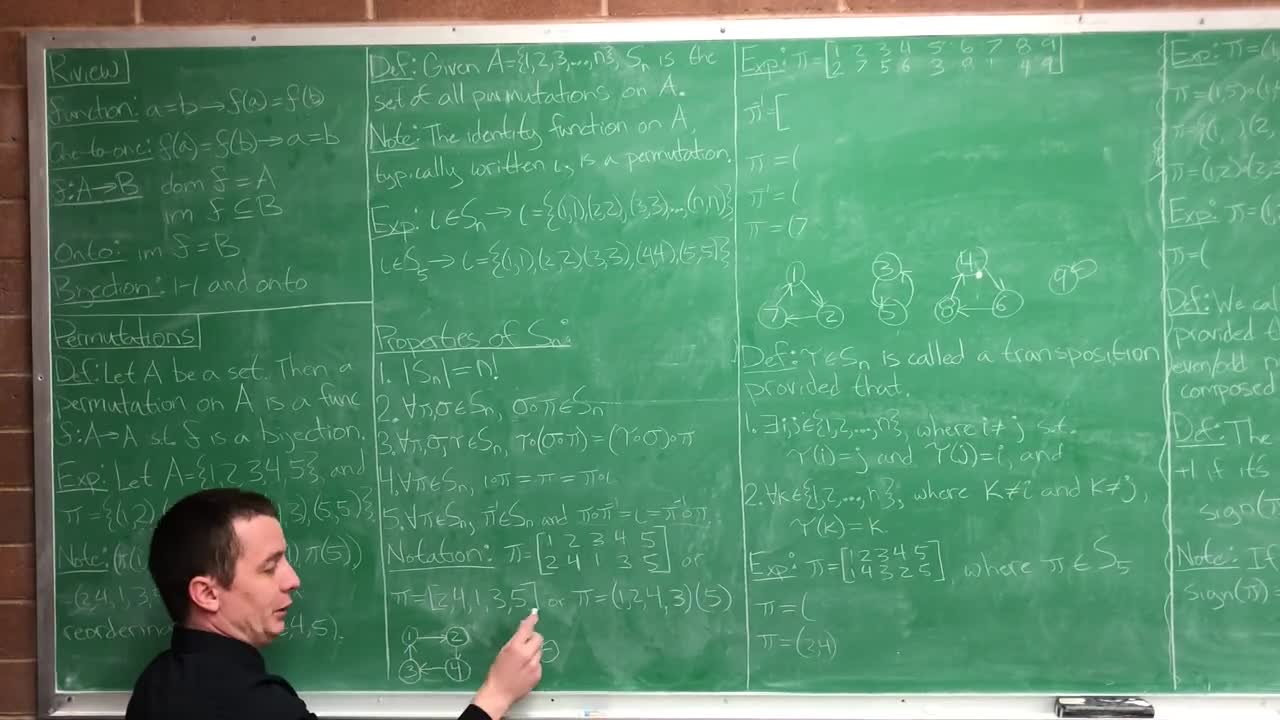 Riview
function: a=b→f(a)=f(b)
One-to-one: f(a)=f(b)→a=b
f:A→B dom f=A
im f⊆B
Onto: im f=B
Bijection: 1-1 and onto
Permutations
Def: Let A be a set. Then a
permutation on A is a func
f:A→A st f is a bijection.
Exp: Let A={1,2,3,4,5}, and
π={(1,2),
,3),(5,5)}
Note: (π(1)
π(5))
(2,4,1,3,
reordering
,4,5).
Def: Given A={1,2,3,...,n}, Sn is the
set of all permutations on A.
Note: The identity function on A,
typically written ι, is a permutation.
Exp: ι∈Sn → ι={(1,1),(2,2),(3,3),...,(n,n)}
ι∈S5 → ι={(1,1),(2,2),(3,3),(4,4),(5,5)}
Properties of Sn:
1. |Sn|=n!
2. ∀π,σ∈Sn, σ∘π∈Sn
3. ∀π,σ,τ∈Sn, τ∘(σ∘π)=(τ∘σ)∘π
4. ∀π∈Sn, ι∘π=π=π∘ι
5. ∀π∈Sn, π⁻¹∈Sn and π∘π⁻¹=ι=π⁻¹∘π
Notation: π=[1 2 3 4 5
2 4 1 3 5] or
π=[2,4,1,3,5] or π=(1,2,4,3)(5)
1 2
3 4
Exp: π=[1 2 3 4 5 6 7 8 9
2 7 5 6 3 8 1 4 9]
π⁻¹=[
π=(
π⁻¹=(
π=(7
1 7 2
3 5
4 8 6
9
Def: τ∈Sn is called a transposition
provided that.
1. ∃i,j∈{1,2,...,n}, where i≠j s.t.
τ(i)=j and τ(j)=i, and
2. ∀k∈{1,2,...,n}, where K≠i and K≠j,
τ(k)=k
Exp: π=[1 2 3 4 5
1 4 3 2 5], where π∈S5
π=(
π=(2,4)
Exp: π=(1
π=(1,5)∘(1,
π={(1, )(2,
π=(1,2)∘(2,
Exp: π=(1,
π=(
Def: We cal
provided t
even/odd
composed
Def: The
+1 if its
sign(π)
Note: If
sign(π)=